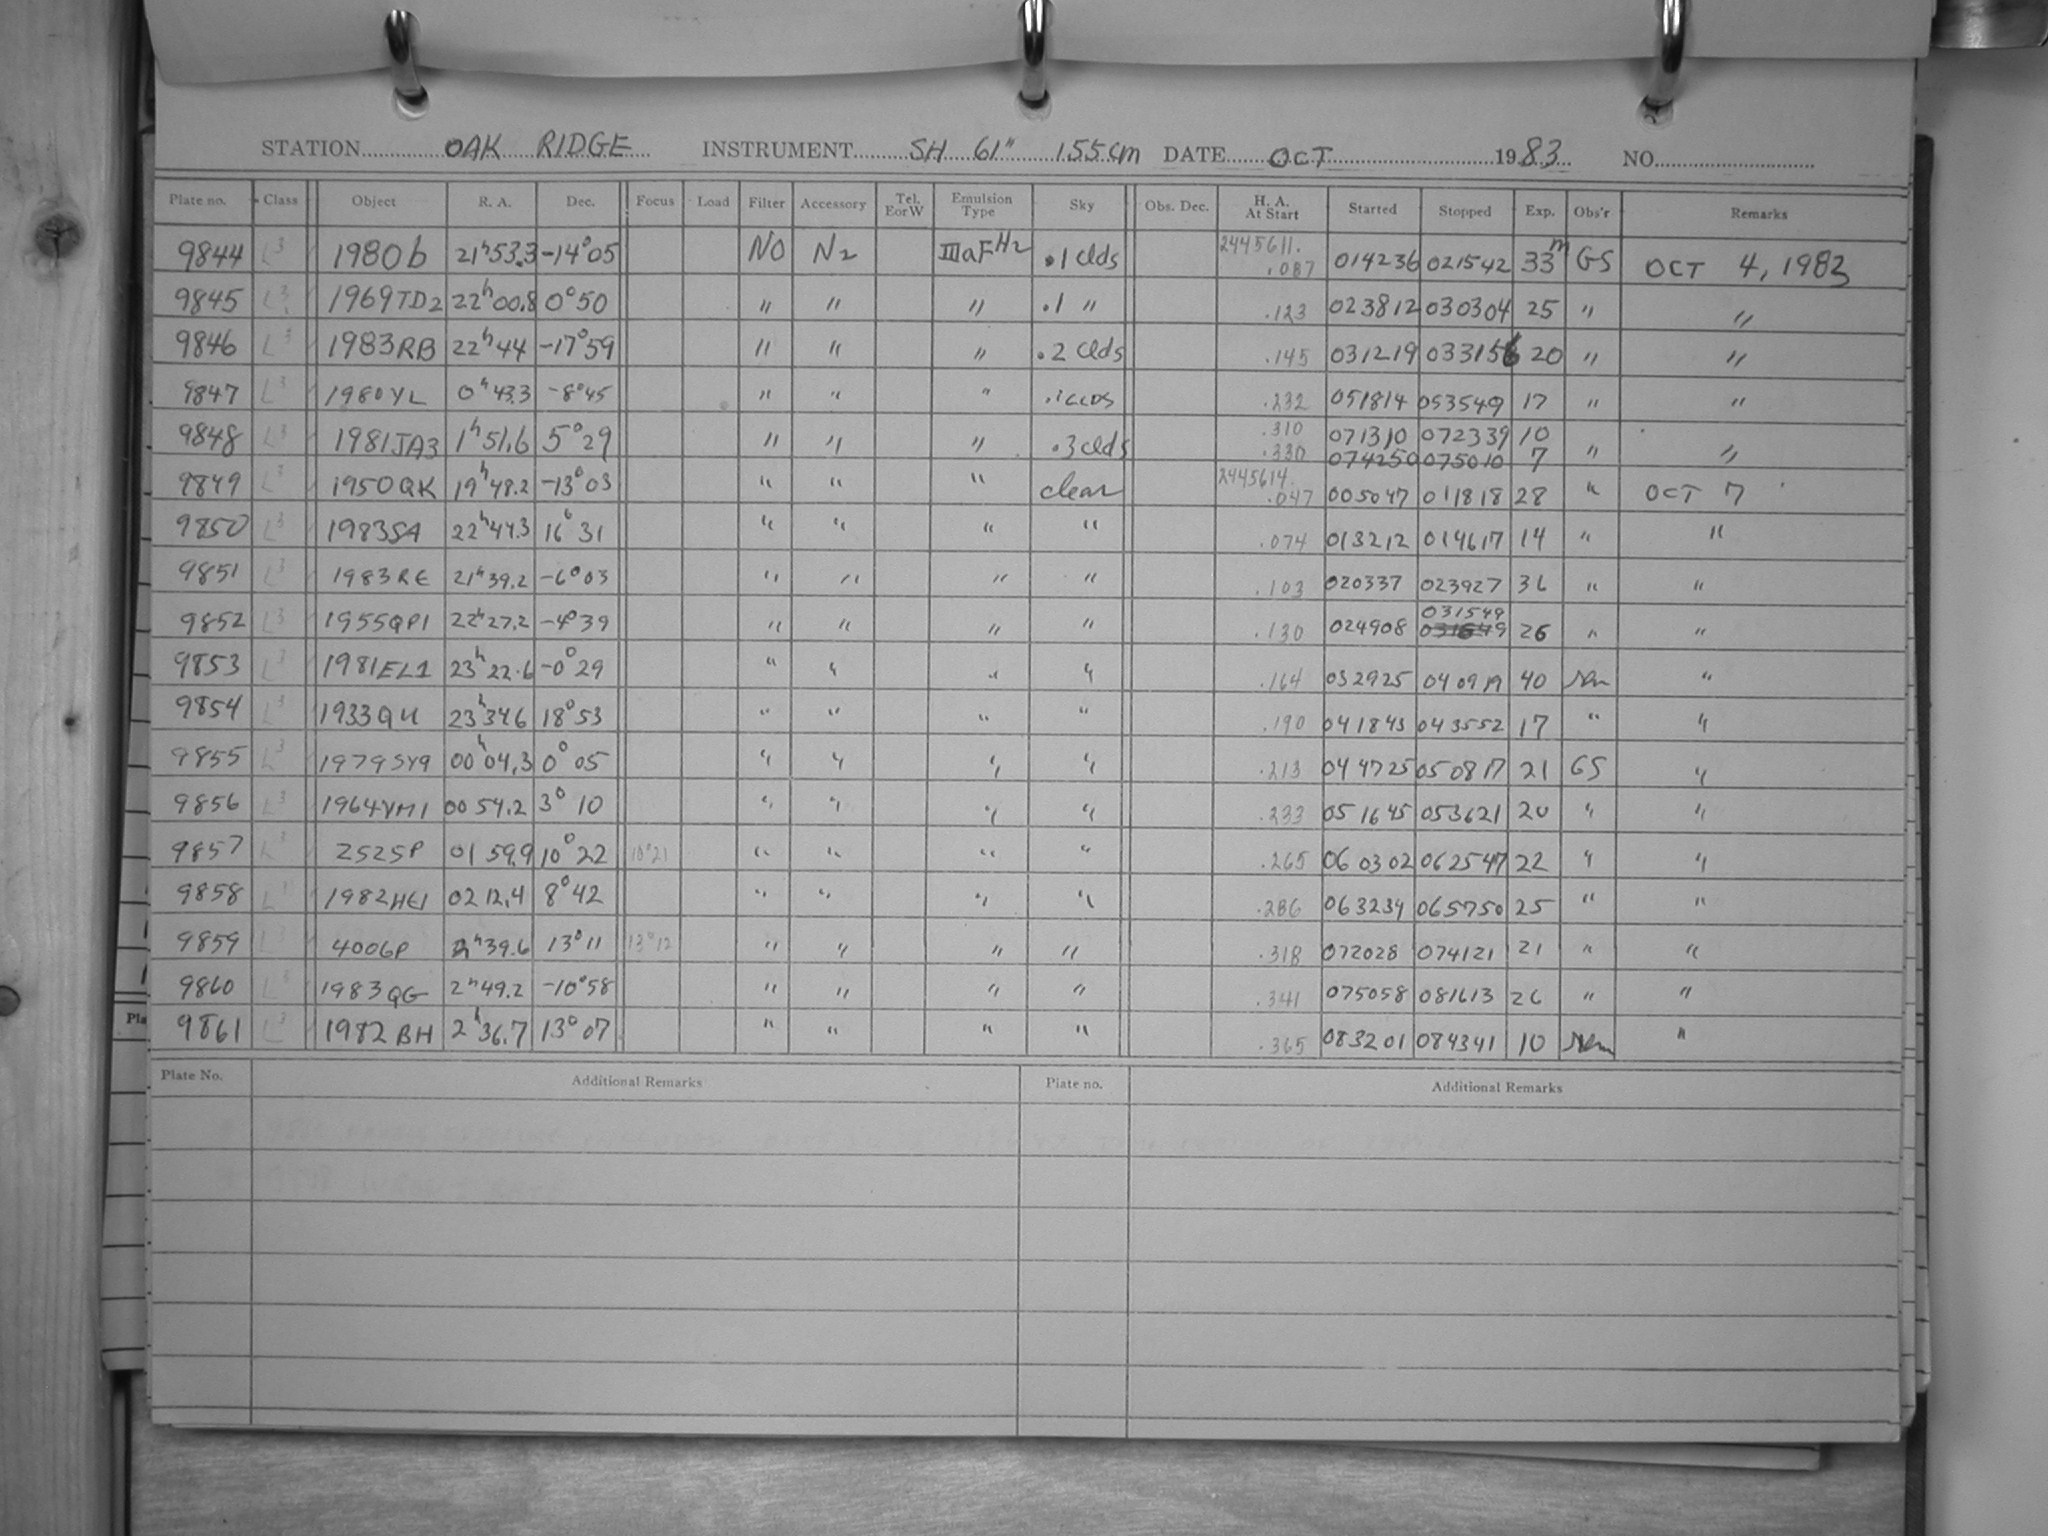 STATION OAK RIDGE INSTRUMENT SH 61" 155cm DATE OCT 1983 NO.
Plate no. Class Object R. A. Dec. Focus Load Filter Accessory Tel. EorW Emulsion Type Sky Obs. Dec. H. A. At Start Started Stopped Exp. Obs'r Remarks
9844 L3 1980b 21h53.3 -14°05 NO N2 IIIaF H2 .1 clds 2445611. .087 014236 021542 33m GS OCT 4, 1983
9845 L3 1969TD2 22h00.8 0°50 " " " .1 " .123 023812 030304 25 " "
9846 L3 1983RB 22h44 -17°59 " " " .2 clds .145 031219 033156 20 " "
9847 L3 1980YL 0h43.3 -8°45 " " " .1clds .232 051814 053549 17 " "
9848 L3 1981JA3 1h51.6 5°29 " " " .3 clds .310 071310 072339 10 " "
.330 074250 075010 7
9849 L3 1950QK 19h48.2 -13°03 " " " clear 2445614. .047 005047 011818 28 " OCT 7
9850 L3 1983SA 22h44.3 16°31 " " " " .074 013212 014617 14 " "
9851 L3 1983RE 21h39.2 -6°03 " " " " .103 020337 023927 36 " "
9852 L3 1955QP1 22h27.2 -4°39 " " " " .130 024908 031549 26 " "
9853 L3 1981EL1 23h22.6 -0°29 " " " " .164 032925 040919 40 "
9854 L3 1933QU 23h34.6 18°53 " " " " .190 041843 043552 17 " "
9855 L3 1979SY9 00h04.3 0°05 " " " " .213 044725 050817 21 GS "
9856 L3 1964VM1 00 54.2 3°10 " " " " .233 051645 053621 20 " "
9857 L3 2525P 01 59.9 10°22 10°21 " " " " .265 060302 062547 22 " "
9858 L3 1982HE1 02 12.4 8°42 " " " " .286 063234 065750 25 " "
9859 L3 4006P 2h39.6 13°11 13°12 " " " " .318 072028 074121 21 " "
9860 L3 1983QG 2h49.2 -10°58 " " " " .341 075058 081613 26 " "
9861 L3 1982BH 2h36.7 13°07 " " " " .365 083201 084341 10 "
Plate No. Additional Remarks Plate no. Additional Remarks
Pla